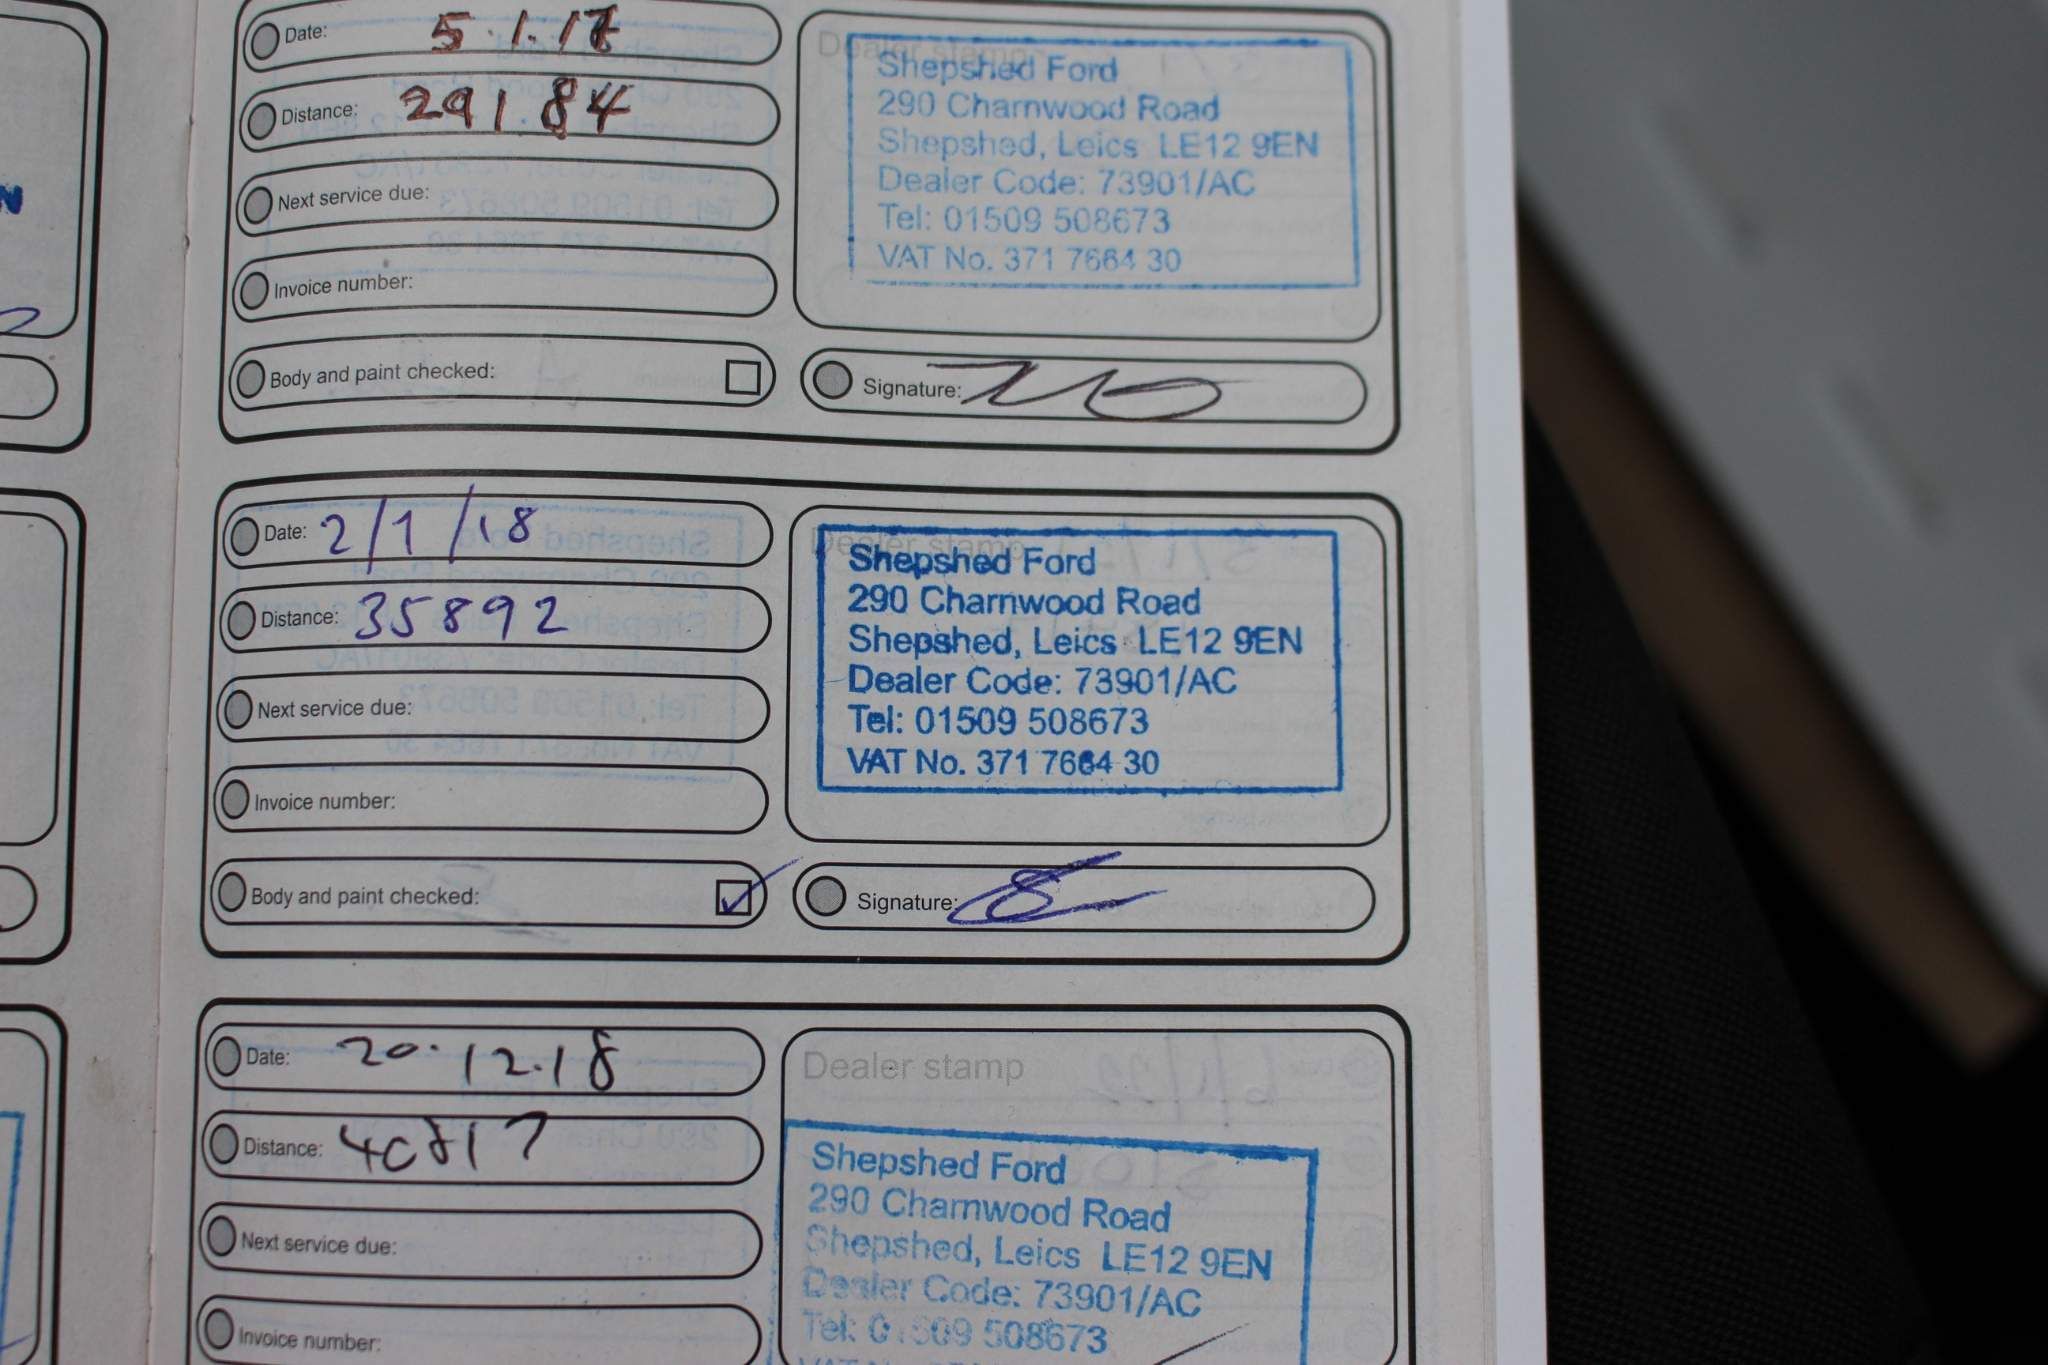 Date: 5.1.17
Distance: 29184
Next service due:
Invoice number:
Body and paint checked:
Dealer stamp
Shepshed Ford
290 Charnwood Road
Shepshed, Leics LE12 9EN
Dealer Code: 73901/AC
Tel: 01509 508673
VAT No. 371 7664 30
Signature:
Date: 2/1/18
Distance: 35892
Next service due:
Invoice number:
Body and paint checked:
Dealer stamp
Shepshed Ford
290 Charnwood Road
Shepshed, Leics LE12 9EN
Dealer Code: 73901/AC
Tel: 01509 508673
VAT No. 371 7664 30
Signature:
Date: 20.12.18
Distance: 40817
Next service due:
Invoice number:
Dealer stamp
Shepshed Ford
290 Charnwood Road
Shepshed, Leics LE12 9EN
Dealer Code: 73901/AC
Tel: 01509 508673